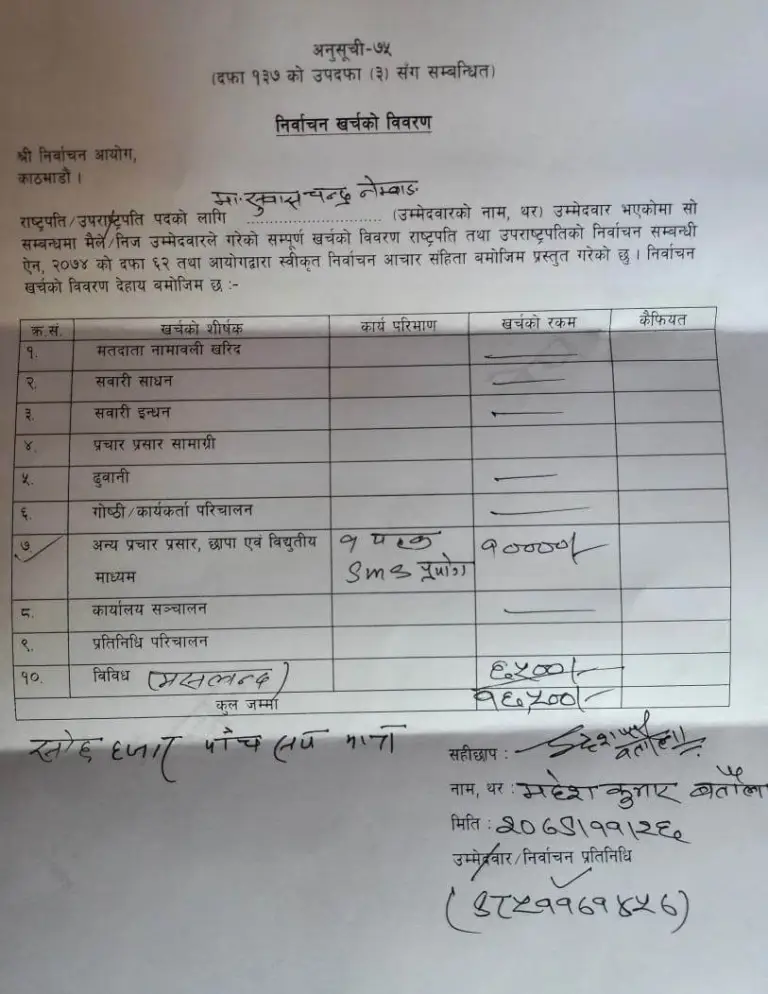 अनुसूची-७५
(दफा १३७ को उपदफा (३) संग सम्बन्धित)
निर्वाचन खर्चको विवरण
श्री निर्वाचन आयोग,
काठमाडौं ।
मा. सुवास चन्द्र नेम्वाङ
राष्ट्रपति/उपराष्ट्रपति पदको लागि .............................. (उम्मेदवारको नाम, थर) उम्मेदवार भएकोमा सो
सम्बन्धमा मैले/निज उम्मेदवारले गरेको सम्पूर्ण खर्चको विवरण राष्ट्रपति तथा उपराष्ट्रपतिको निर्वाचन सम्बन्धी
ऐन, २०७४ को दफा ६२ तथा आयोगद्वारा स्वीकृत निर्वाचन आचार संहिता बमोजिम प्रस्तुत गरेको छु । निर्वाचन
खर्चको विवरण देहाय बमोजिम छ :-
क्र.सं. खर्चको शीर्षक कार्य परिमाण खर्चको रकम कैफियत
१. मतदाता नामावली खरिद
२. सवारी साधन
३. सवारी इन्धन
४. प्रचार प्रसार सामाग्री
५. ढुवानी
६. गोष्ठी/कार्यकर्ता परिचालन
७. अन्य प्रचार प्रसार, छापा एवं विद्युतीय १ पटक १००००/-
माध्यम SMS प्रयोग
८. कार्यालय सञ्चालन
९. प्रतिनिधि परिचालन
१०. विविध (मसलन्द) ६५००/-
कुल जम्मा १६५००/-
सोह्र हजार पाँच सय मात्र
सहीछाप :
नाम, थर : महेश कुमार बर्तौला
मिति : २०७९।११।२६
उम्मेदवार/निर्वाचन प्रतिनिधि
(९८५११७१४५६)